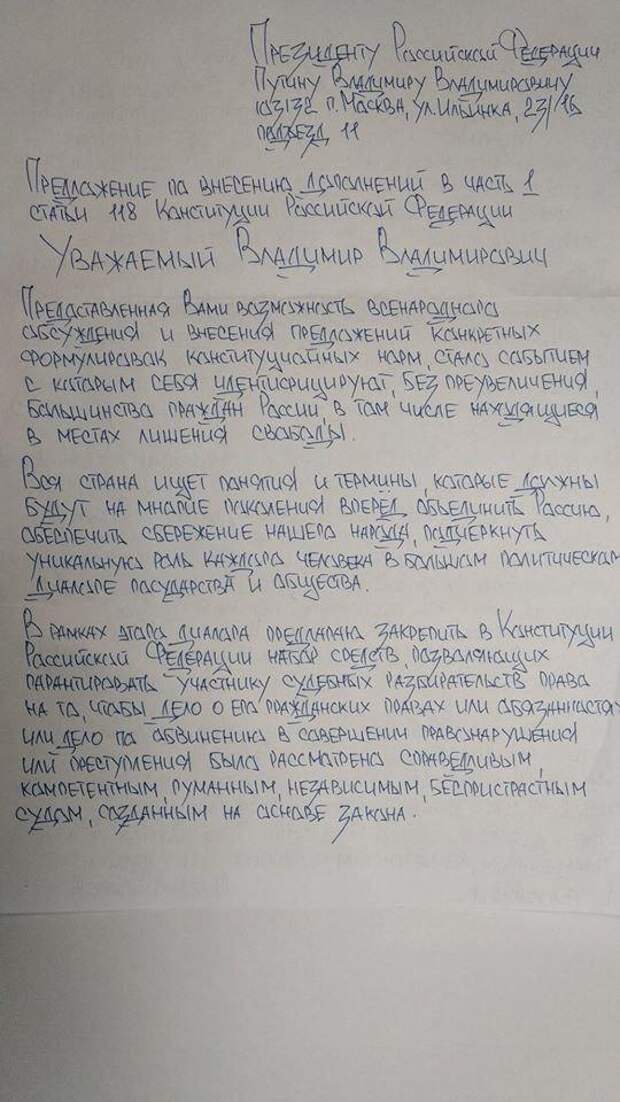 Президенту Российской Федерации
Путину Владимиру Владимировичу
103132 г. Москва, ул. Ильинка, 23/16
подъезд 11
Предложение по внесению дополнений в часть 1
статьи 118 Конституции Российской Федерации
Уважаемый Владимир Владимирович
Предоставленная Вами возможность всенародного
обсуждения и внесения предложений конкретных
формулировок конституционных норм, стала событием
с которым себя идентифицируют, без преувеличения,
большинство граждан России, в том числе находящиеся
в местах лишения свободы.
Вся страна ищет понятия и термины, которые должны
будут на многие поколения вперёд объединить Россию,
обеспечить сбережение нашего народа, подчеркнуть
уникальную роль каждого человека в большом политическом
диалоге государства и общества.
В рамках этого диалога предлагаю закрепить в Конституции
Российской Федерации набор средств, позволяющих
гарантировать участнику судебных разбирательств права
на то, чтобы дело о его гражданских правах или обязанностях
или дело по обвинению в совершении правонарушения
или преступления было рассмотрено справедливым,
компетентным, гуманным, независимым, беспристрастным
судом, созданным на основе закона.